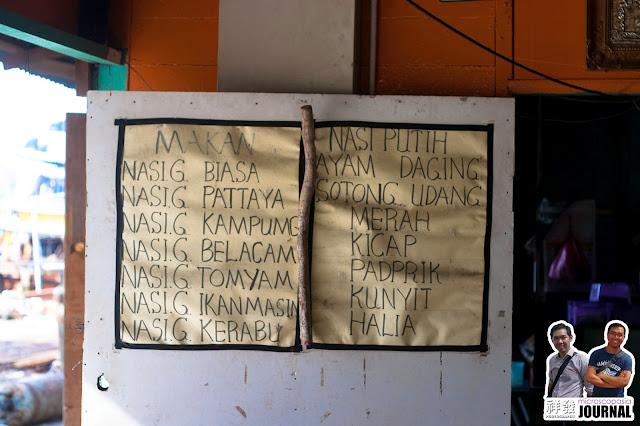 MAKAN
NASI.G. BIASA
NASI.G. PATTAYA
NASI.G. KAMPUNG
NASI.G. BELACAM
NASI.G. TOMYAM
NASI.G. IKANMASIN
NASI.G. KERABU
NASI PUTIH
AYAM DAGING
SOTONG UDANG
MERAH
KICAP
PADPRIK
KUNYIT
HALIA
祥發 microscopasia
PHOTOGRAPHY JOURNAL